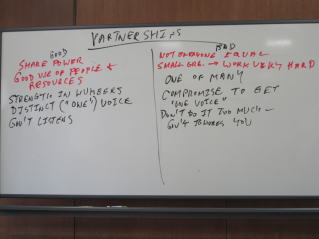 PARTNERSHIPS
GOOD
SHARE POWER
GOOD USE OF PEOPLE &
RESOURCES
STRENGTH IN NUMBERS
DISTINCT ("ONE") VOICE
GOV'T LISTENS
BAD
NOT EVERYONE EQUAL
SMALL GRP. → WORK VERY HARD
ONE OF MANY
COMPROMISE TO GET
"ONE VOICE"
DON'T DO IT TOO MUCH -
GOV'T IGNORES YOU